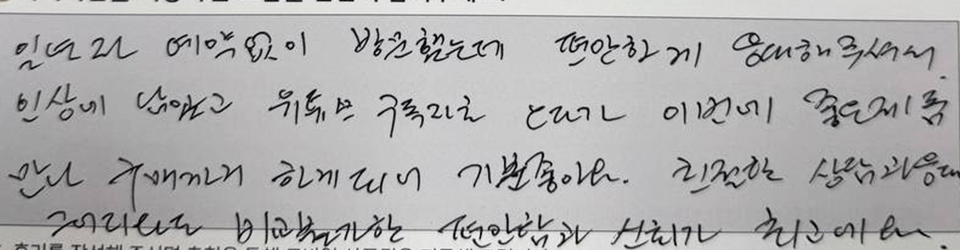 일년 전 예약없이 방문했는데 편안하게 응대해주셔서.
인상에 남았고 유튜브 구독자로 있다가 이번에 좋은제품
만나 구매까지 하게되어 기분좋아요. 친절한 상담과응대
비교불가한 편안함과 신뢰가 최고예요.